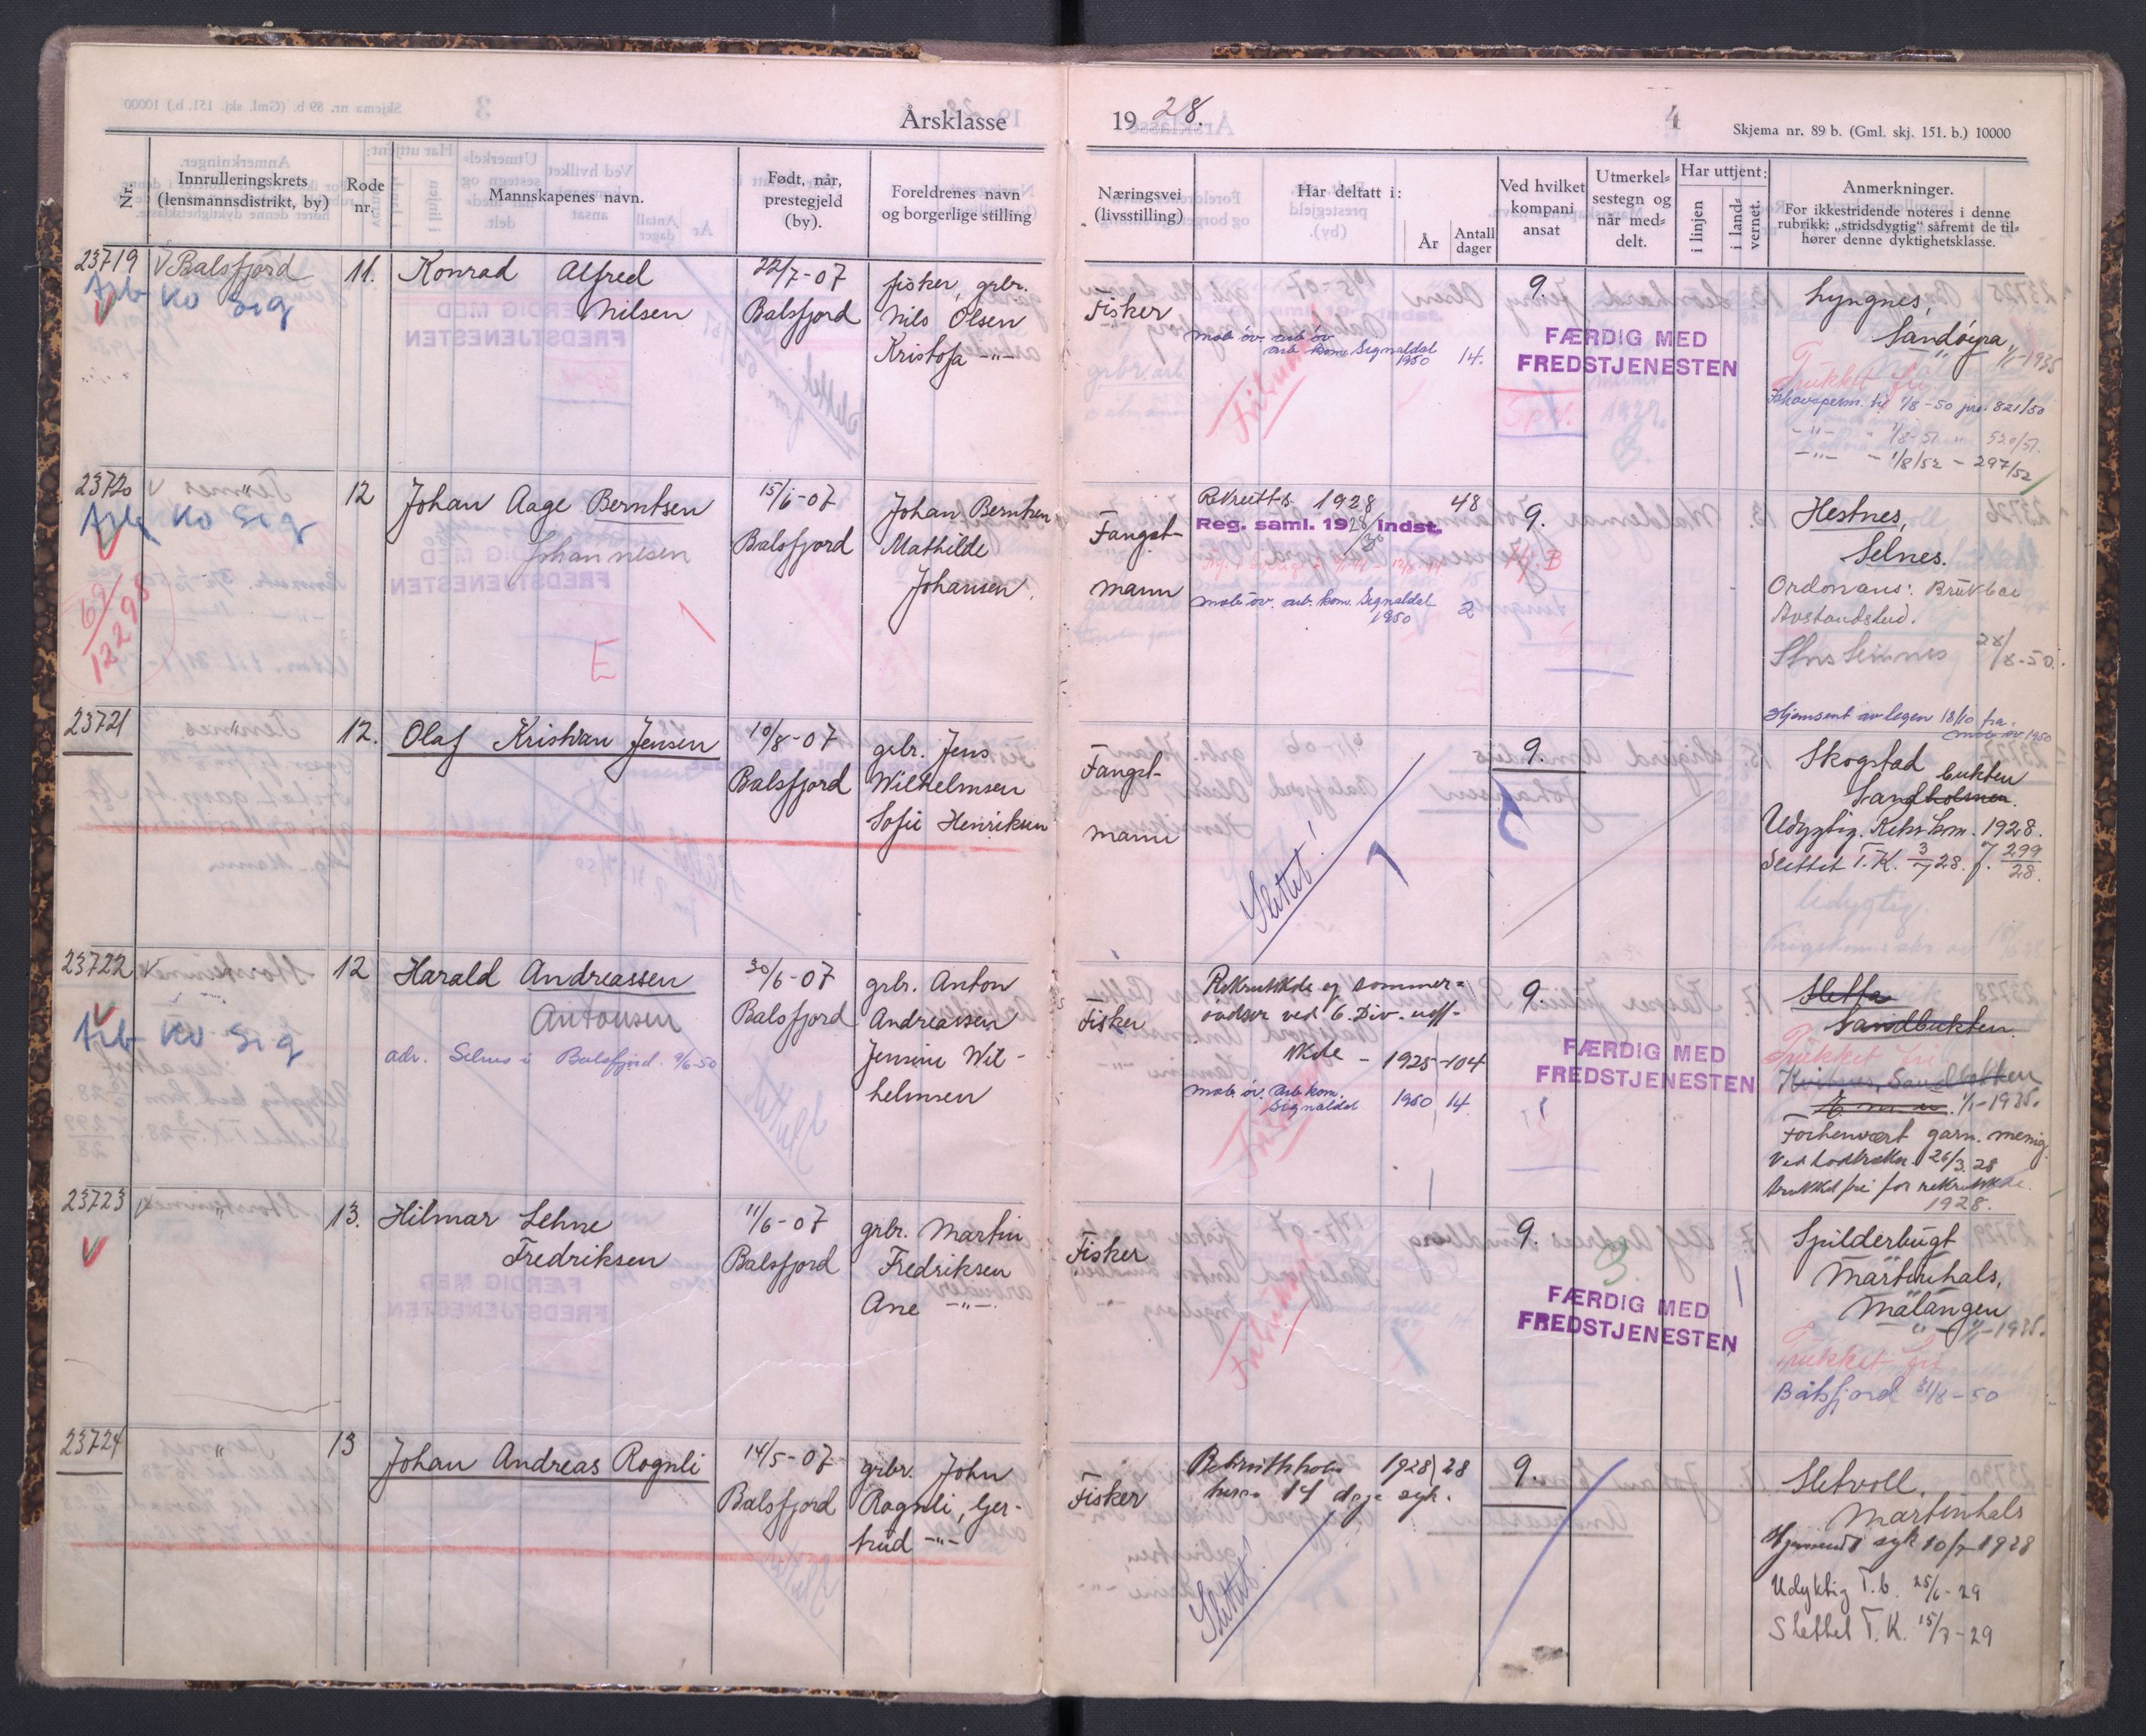 Årsklasse
1928.
4
Skjema nr. 89 b. (Gml. skj. 151. b.) 10000
Nr.
Innrulleringskrets
(lensmannsdistrikt, by)
Rode
nr.
Mannskapenes navn.
Født, når,
prestegjeld
(by).
Foreldrenes navn
og borgerlige stilling
Næringsvei
(livsstilling)
Har deltatt i:
År
Antall
dager
Ved hvilket
kompani
ansat
Utmerkel=
sestegn og
når med=
delt.
Har uttjent:
i linjen
i land=
vernet.
Anmerkninger.
For ikkestridende noteres i denne
rubrikk: „stridsdygtig" såfremt de til=
hører denne dyktighetsklasse.
23719
V Balsfjord
Arb Ko Sig
11.
Konrad Alfred
Nilsen
22/7-07
Balsfjord
fisker, grbr.
Nils Olsen
Kristofa -"-
Fisker
mob øv. arb øv
arb kom. Signaldal
1950 14.
9.
FÆRDIG MED
FREDSTJENESTEN
Lyngnes,
Sandøyra 1/1-1935
Trukket fri
til 1/8-50 jnr. 821/50
-"- " 1/8-51 " 530/51.
-"- - 1/8/52 - 297/52
23720
V "
Arb Ko Sig
69/12298
12
Johan Aage Berntsen
Johannesen
E
15/6-07
Balsfjord
Johan Berntsen
Mathilde
Johansen.
Fangst-
mann
Rekruttsk 1928 48
Reg. saml. 1928/ indst.
mob øv. arb. kom. Signaldal
1950 2
9.
Hestnes,
Selnes.
Ordonans:
Avstandsbed.
28/8-50.
Hjemsent av legen 18/10 fra
mob øv 1950
23721
"
12.
Olaf Kristian Jensen
10/8-07
Balsfjord
grbr. Jens
Wilhelmsen
Sofie Henriksen
Fangst-
mann
Slettet!
9.
Skogstad
bukten
Sandholmen.
Udygtig. Kom. 1928.
Slettet T.K. 3/7 28. J. 299/28.
Udygtig.
23722
V "
Arb Ko Sig
12
Harald Andreassen
Antonsen
adr. Selnes i Balsfjord. 9/6-50
30/6-07
Balsfjord
grbr. Anton
Andreassen
Jensine Wil-
helmsen
Fisker
Rekrutskole og sommer=
øvelser ved 6. Div. uoff.
skole - 1925-104
mob øv. arb kom.
Signaldal 1950 14.
9.
FÆRDIG MED
FREDSTJENESTEN
Sletta
Sandbukten
Trukket fri
1/1-1935.
Forhenvært garn. menig.
Ved lodtrekn. 26/3.28
trukket fri for rekrutskole.
1928.
23723
"
13.
Hilmar Lehne
Fredriksen
11/6-07
Balsfjord
grbr. Martin
Fredriksen
Ane -"-
Fisker
9.
FÆRDIG MED
FREDSTJENESTEN
Spilderbugt
Martinhals,
Malangen
1/1-1935.
Trukket fri
Balsfjord 31/8-50
23724
"
13
Johan Andreas Rognli
14/5-07
Balsfjord
grbr. John
Rognli, Ger-
trud -"-
Fisker
Rekrutskole 1928 28
herav 14 dage syk.
Slettet!
9.
Sletvoll,
Martinhals
Hjemsendt syk 10/7-1928
Udyktig T.b. 25/6-29
Slettet T.K. 15/7-29